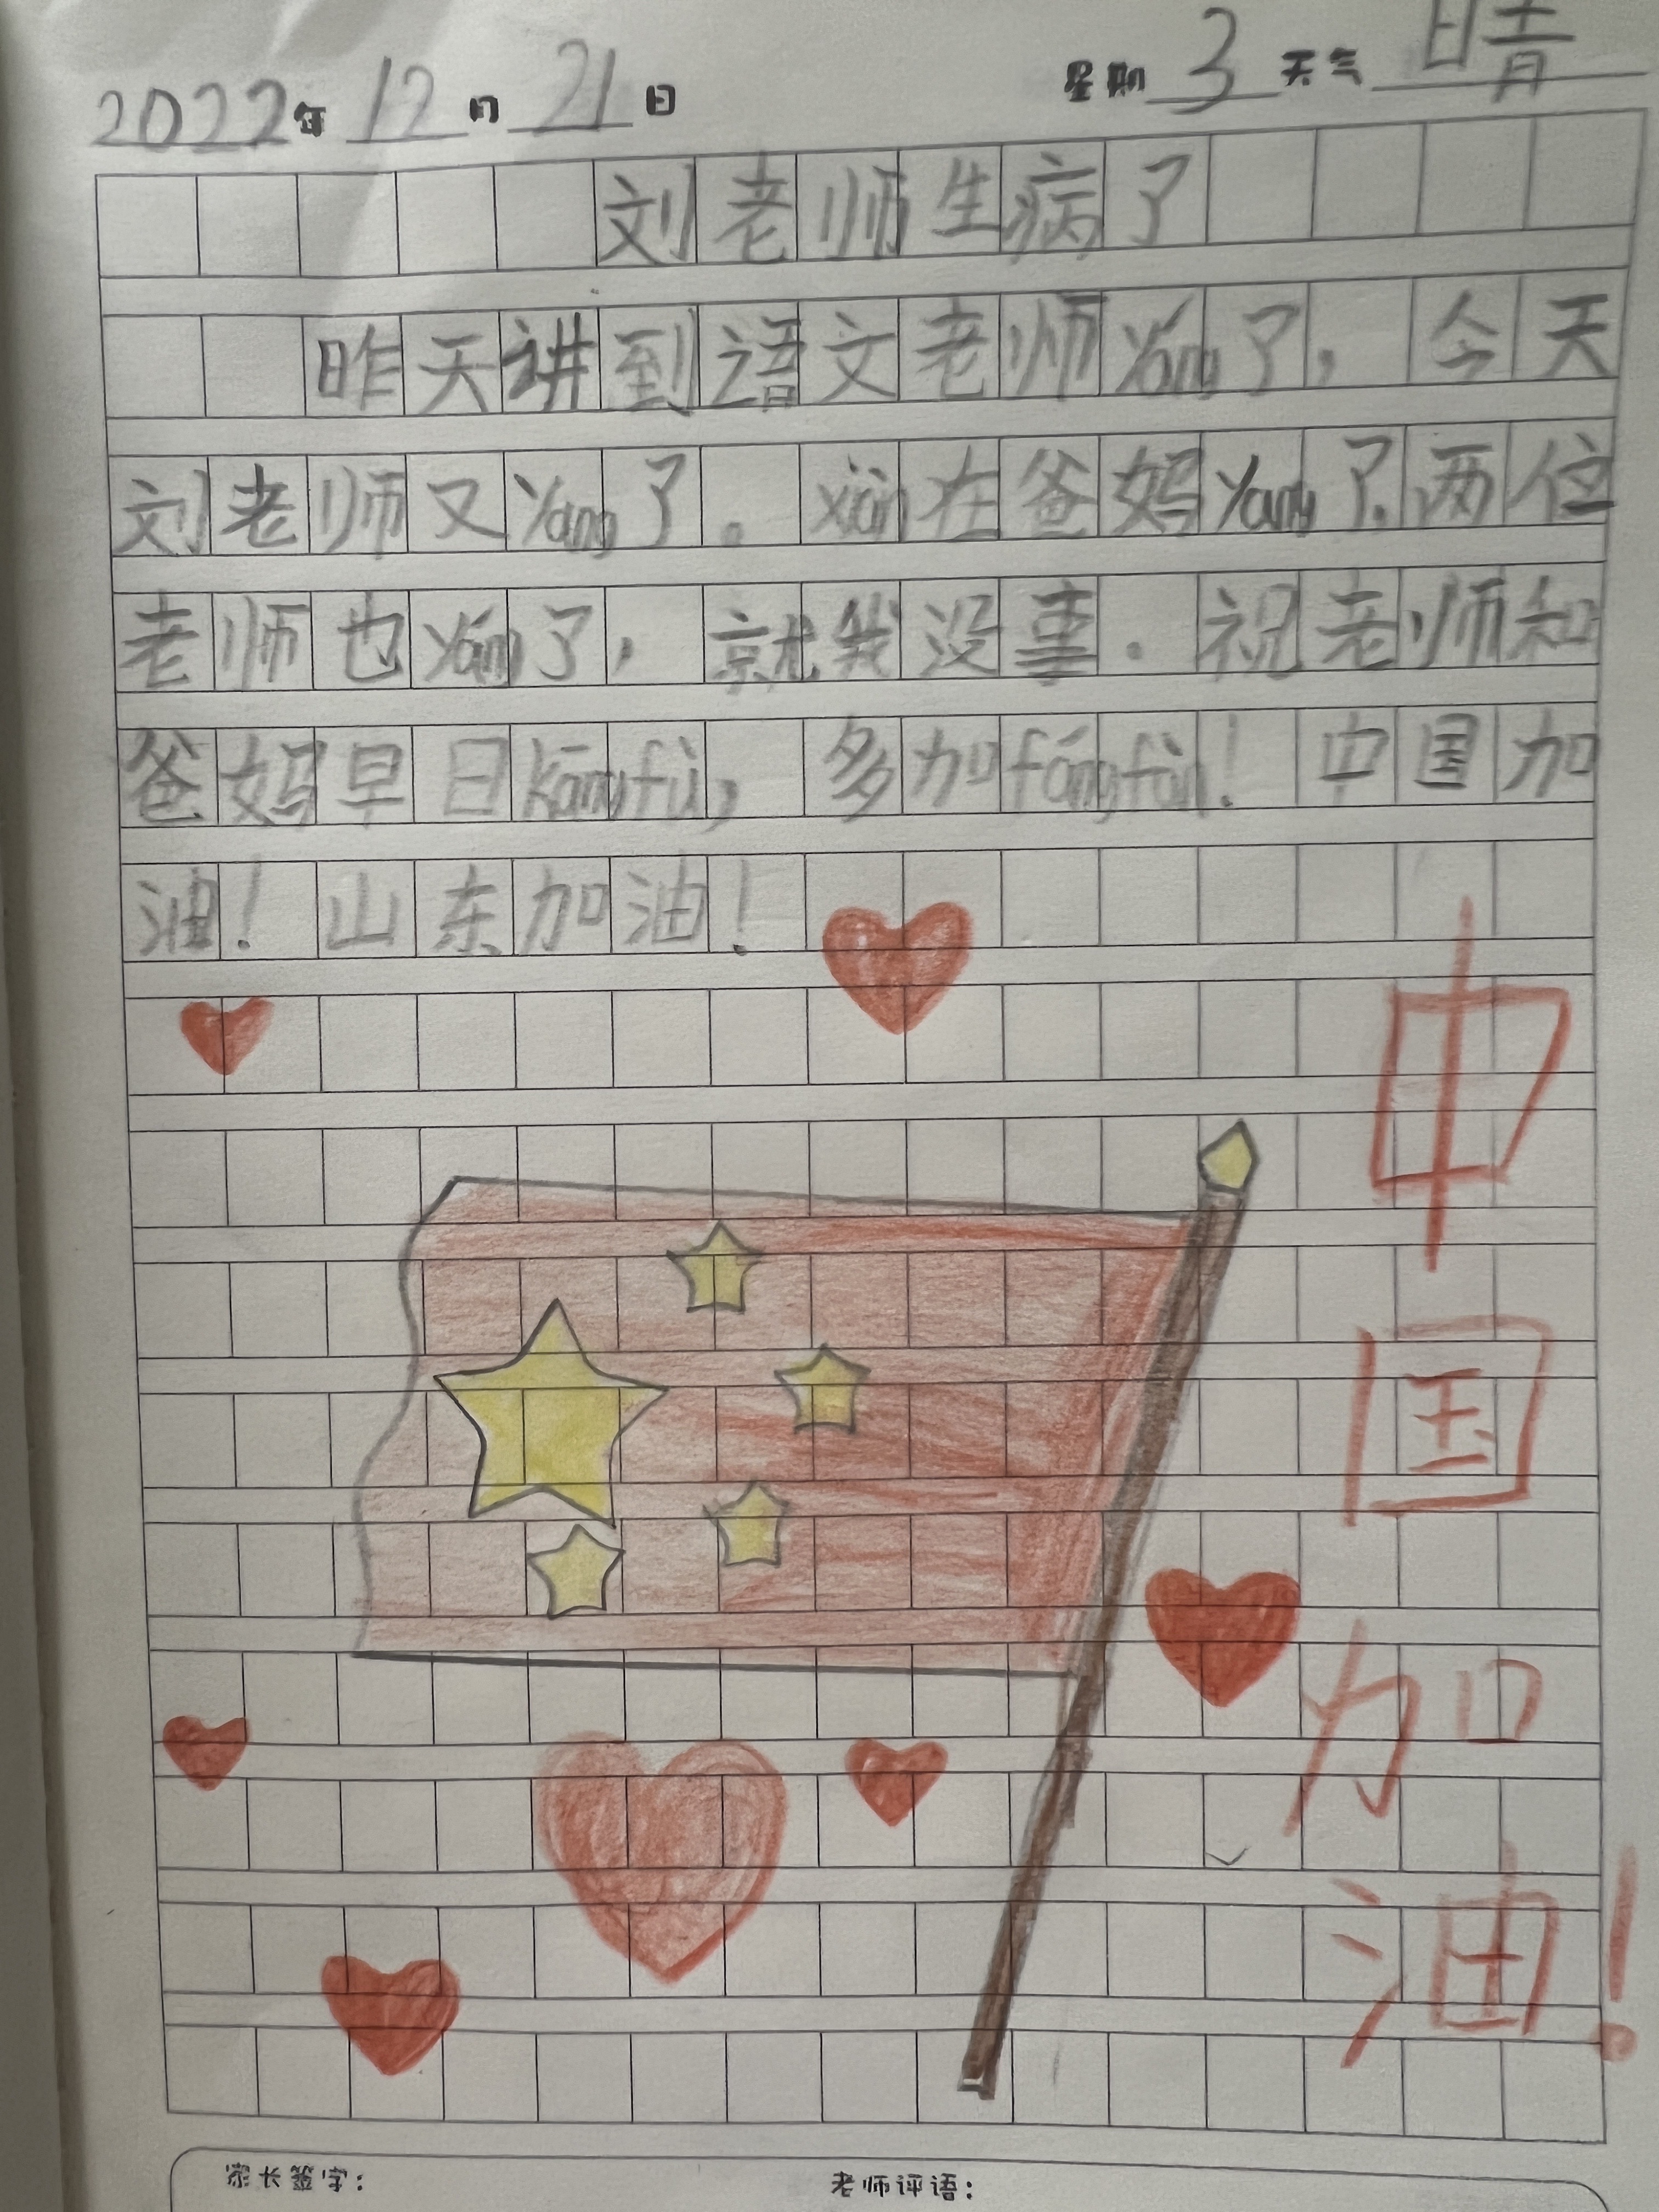 2022年12月21日 星期3天气晴
刘老师生病了
昨天讲到语文老师yáng了，今天
刘老师又yáng了。xiàn在爸妈yáng了.两位
老师也yáng了，就我没事.祝老师和
爸妈早日kāngfù，多加fángfàn！中国加
油！山东加油！
中
国
加
油！
家长签字：
老师评语：